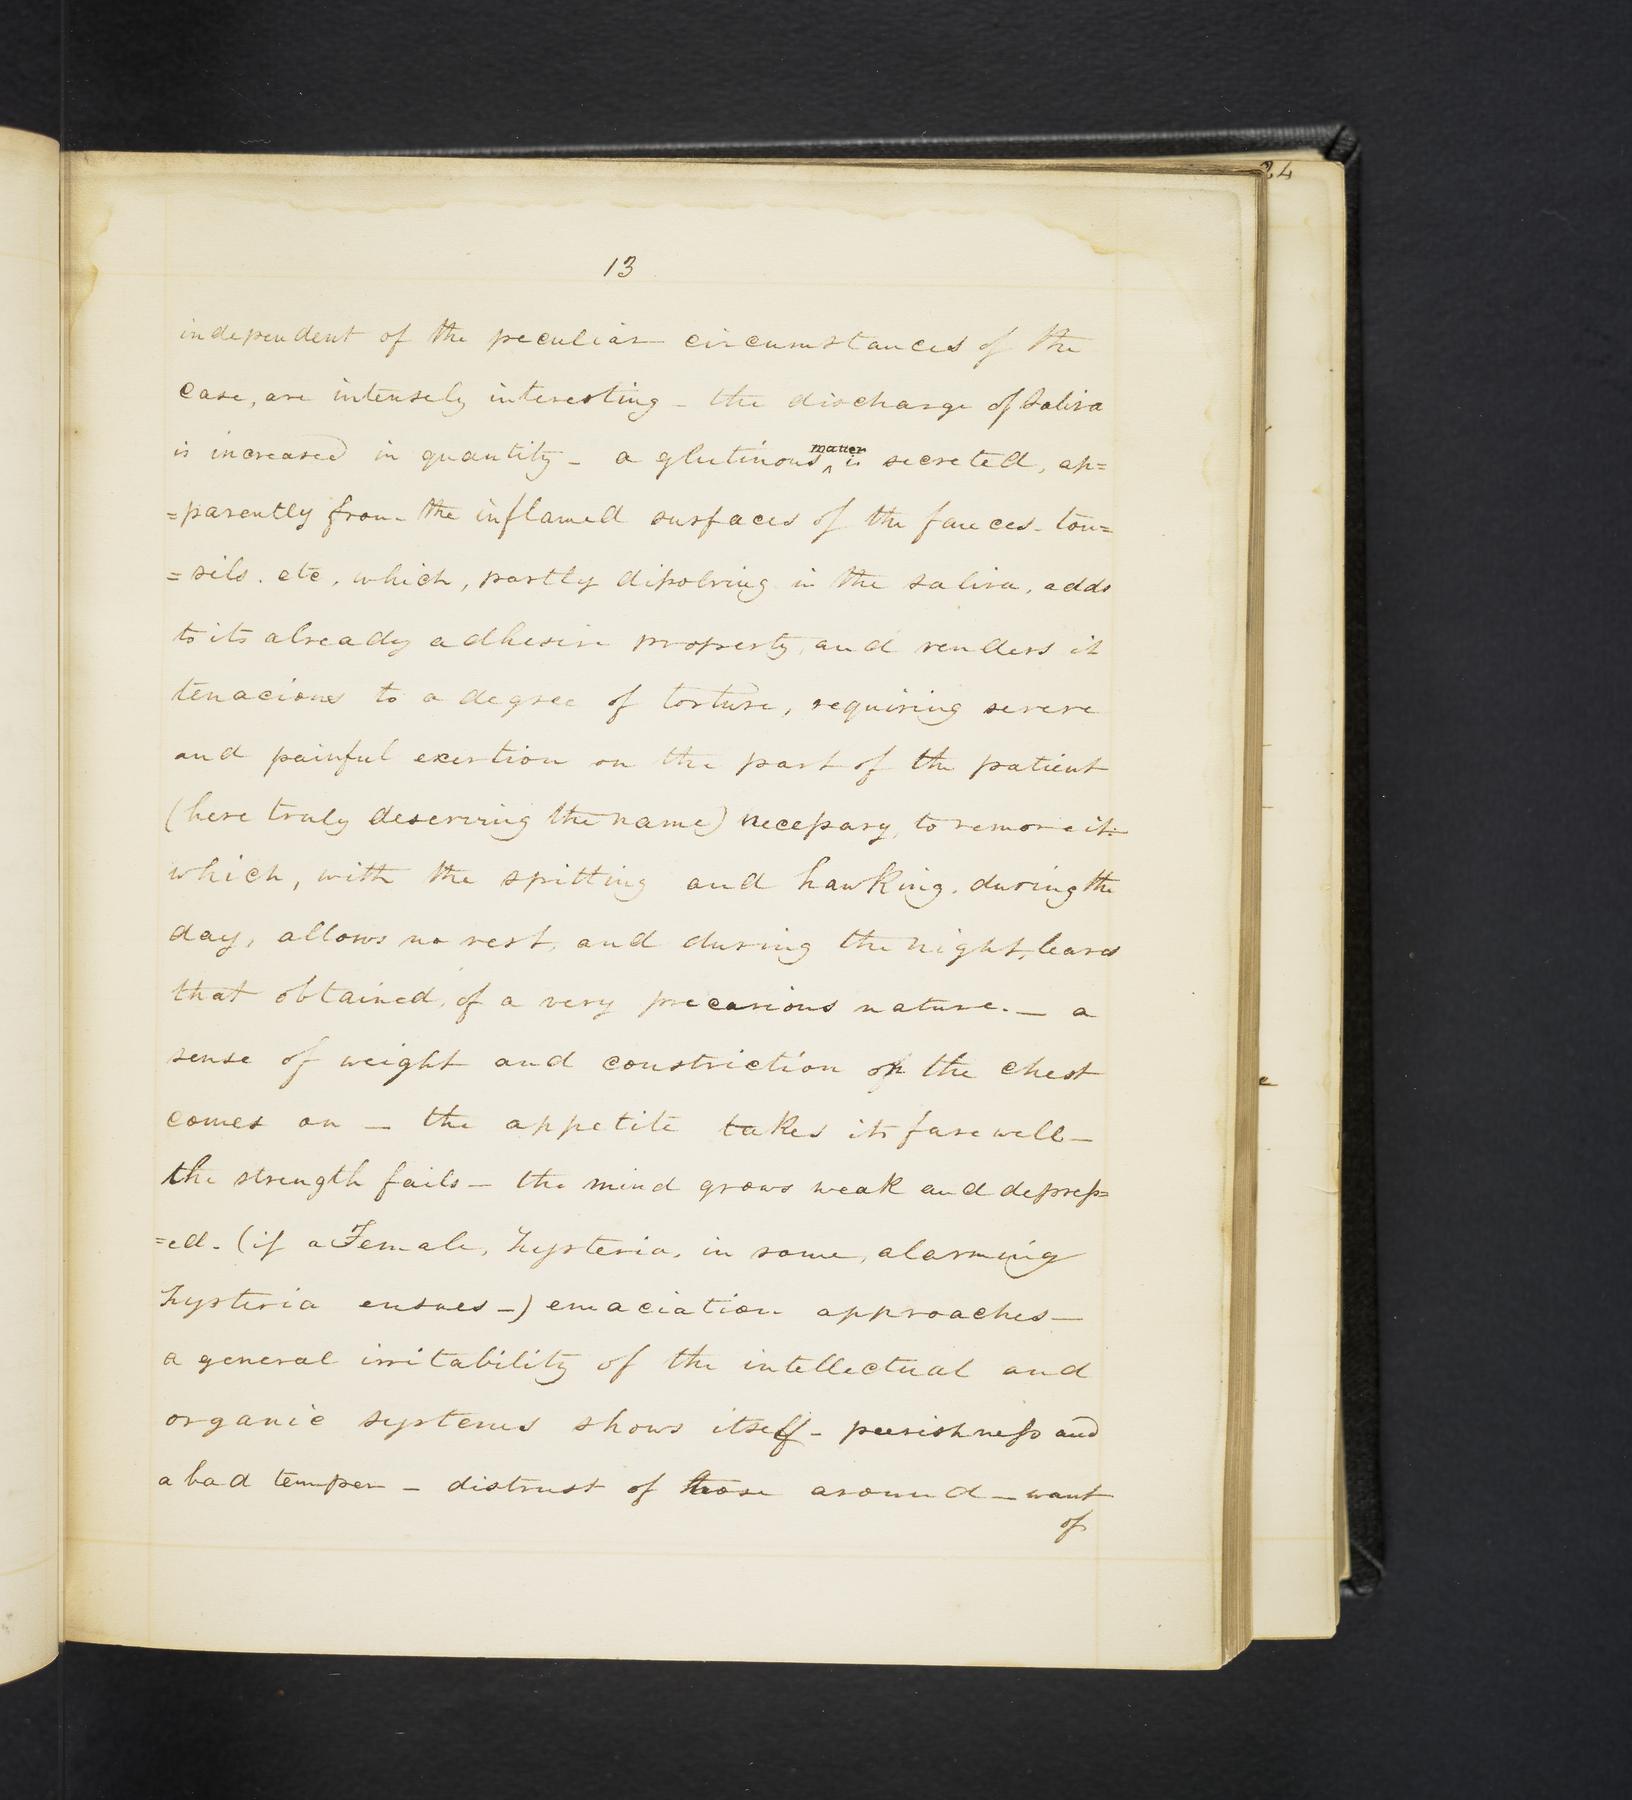 24
13
independent of the peculiar circumstances of the
case, are intensely interesting - the discharge of Saliva
is increased in quantity - a glutinous ^matter is secreted, ap=
=parently from the inflamed surfaces of the fauces - ton=
=sils. etc, which, partly dissolving in the saliva, adds
to its already adhesive property, and renders it
tenacious to a degree of torture, requiring severe
and painful exertion on the part of the patient
(here truly deserving the name) necessary, to remove it:
which, with the spitting and hawking, during the
day, allows no rest, and during the night, leaves
that obtained, of a very precarious nature. — a
sense of weight and constriction of the chest
comes on — the appetite takes its farewell —
the strength fails — the mind grows weak and depress=
=ed. (if a Female, hysteria, in some, alarming
hysteria ensues —) emaciation approaches —
a general irritability of the intellectual and
organic systems shows itself - peevishness and
a bad temper — distrust of those around — want
of
e